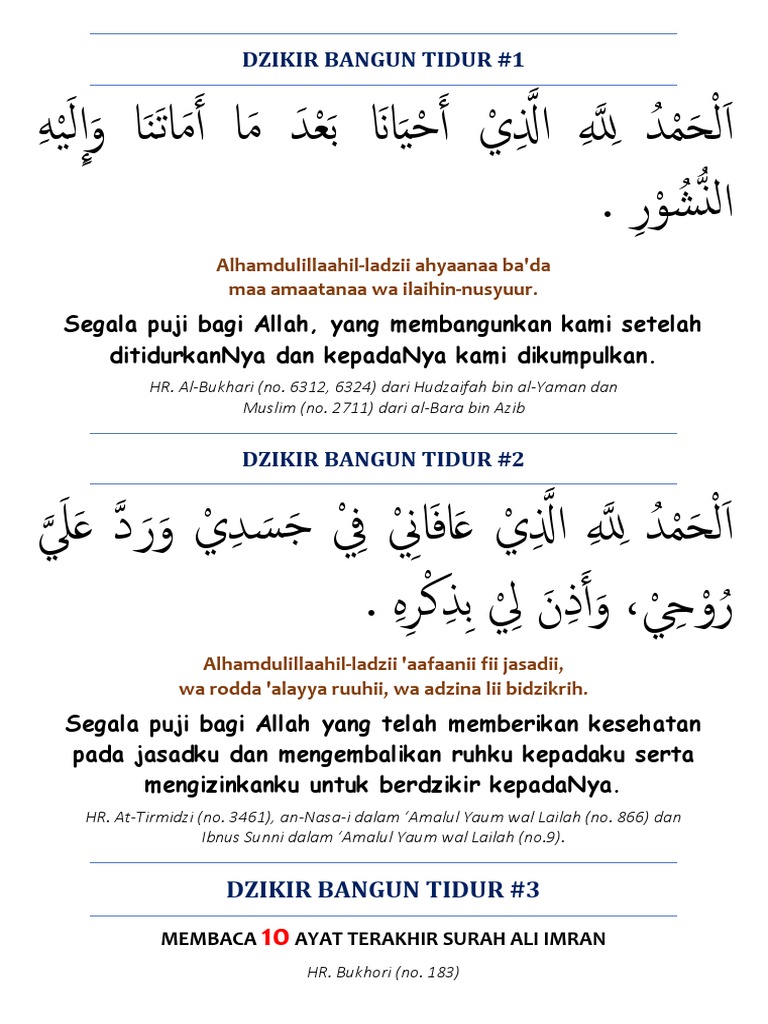 DZIKIR BANGUN TIDUR #1
اَلْحَمْدُ لِلَّهِ الَّذِيْ أَحْيَانَا بَعْدَ مَا أَمَاتَنَا وَإِلَيْهِ
النُّشُوْرِ .
Alhamdulillaahil-ladzii ahyaanaa ba'da
maa amaatanaa wa ilaihin-nusyuur.
Segala puji bagi Allah, yang membangunkan kami setelah
ditidurkanNya dan kepadaNya kami dikumpulkan.
HR. Al-Bukhari (no. 6312, 6324) dari Hudzaifah bin al-Yaman dan
Muslim (no. 2711) dari al-Bara bin Azib
DZIKIR BANGUN TIDUR #2
اَلْحَمْدُ لِلَّهِ الَّذِيْ عَافَانِيْ فِيْ جَسَدِيْ وَرَدَّ عَلَيَّ
رُوْحِيْ، وَأَذِنَ لِيْ بِذِكْرِهِ .
Alhamdulillaahil-ladzii 'aafaanii fii jasadii,
wa rodda 'alayya ruuhii, wa adzina lii bidzikrih.
Segala puji bagi Allah yang telah memberikan kesehatan
pada jasadku dan mengembalikan ruhku kepadaku serta
mengizinkanku untuk berdzikir kepadaNya.
HR. At-Tirmidzi (no. 3461), an-Nasa-i dalam ‘Amalul Yaum wal Lailah (no. 866) dan
Ibnus Sunni dalam ‘Amalul Yaum wal Lailah (no.9).
DZIKIR BANGUN TIDUR #3
MEMBACA 10 AYAT TERAKHIR SURAH ALI IMRAN
HR. Bukhori (no. 183)